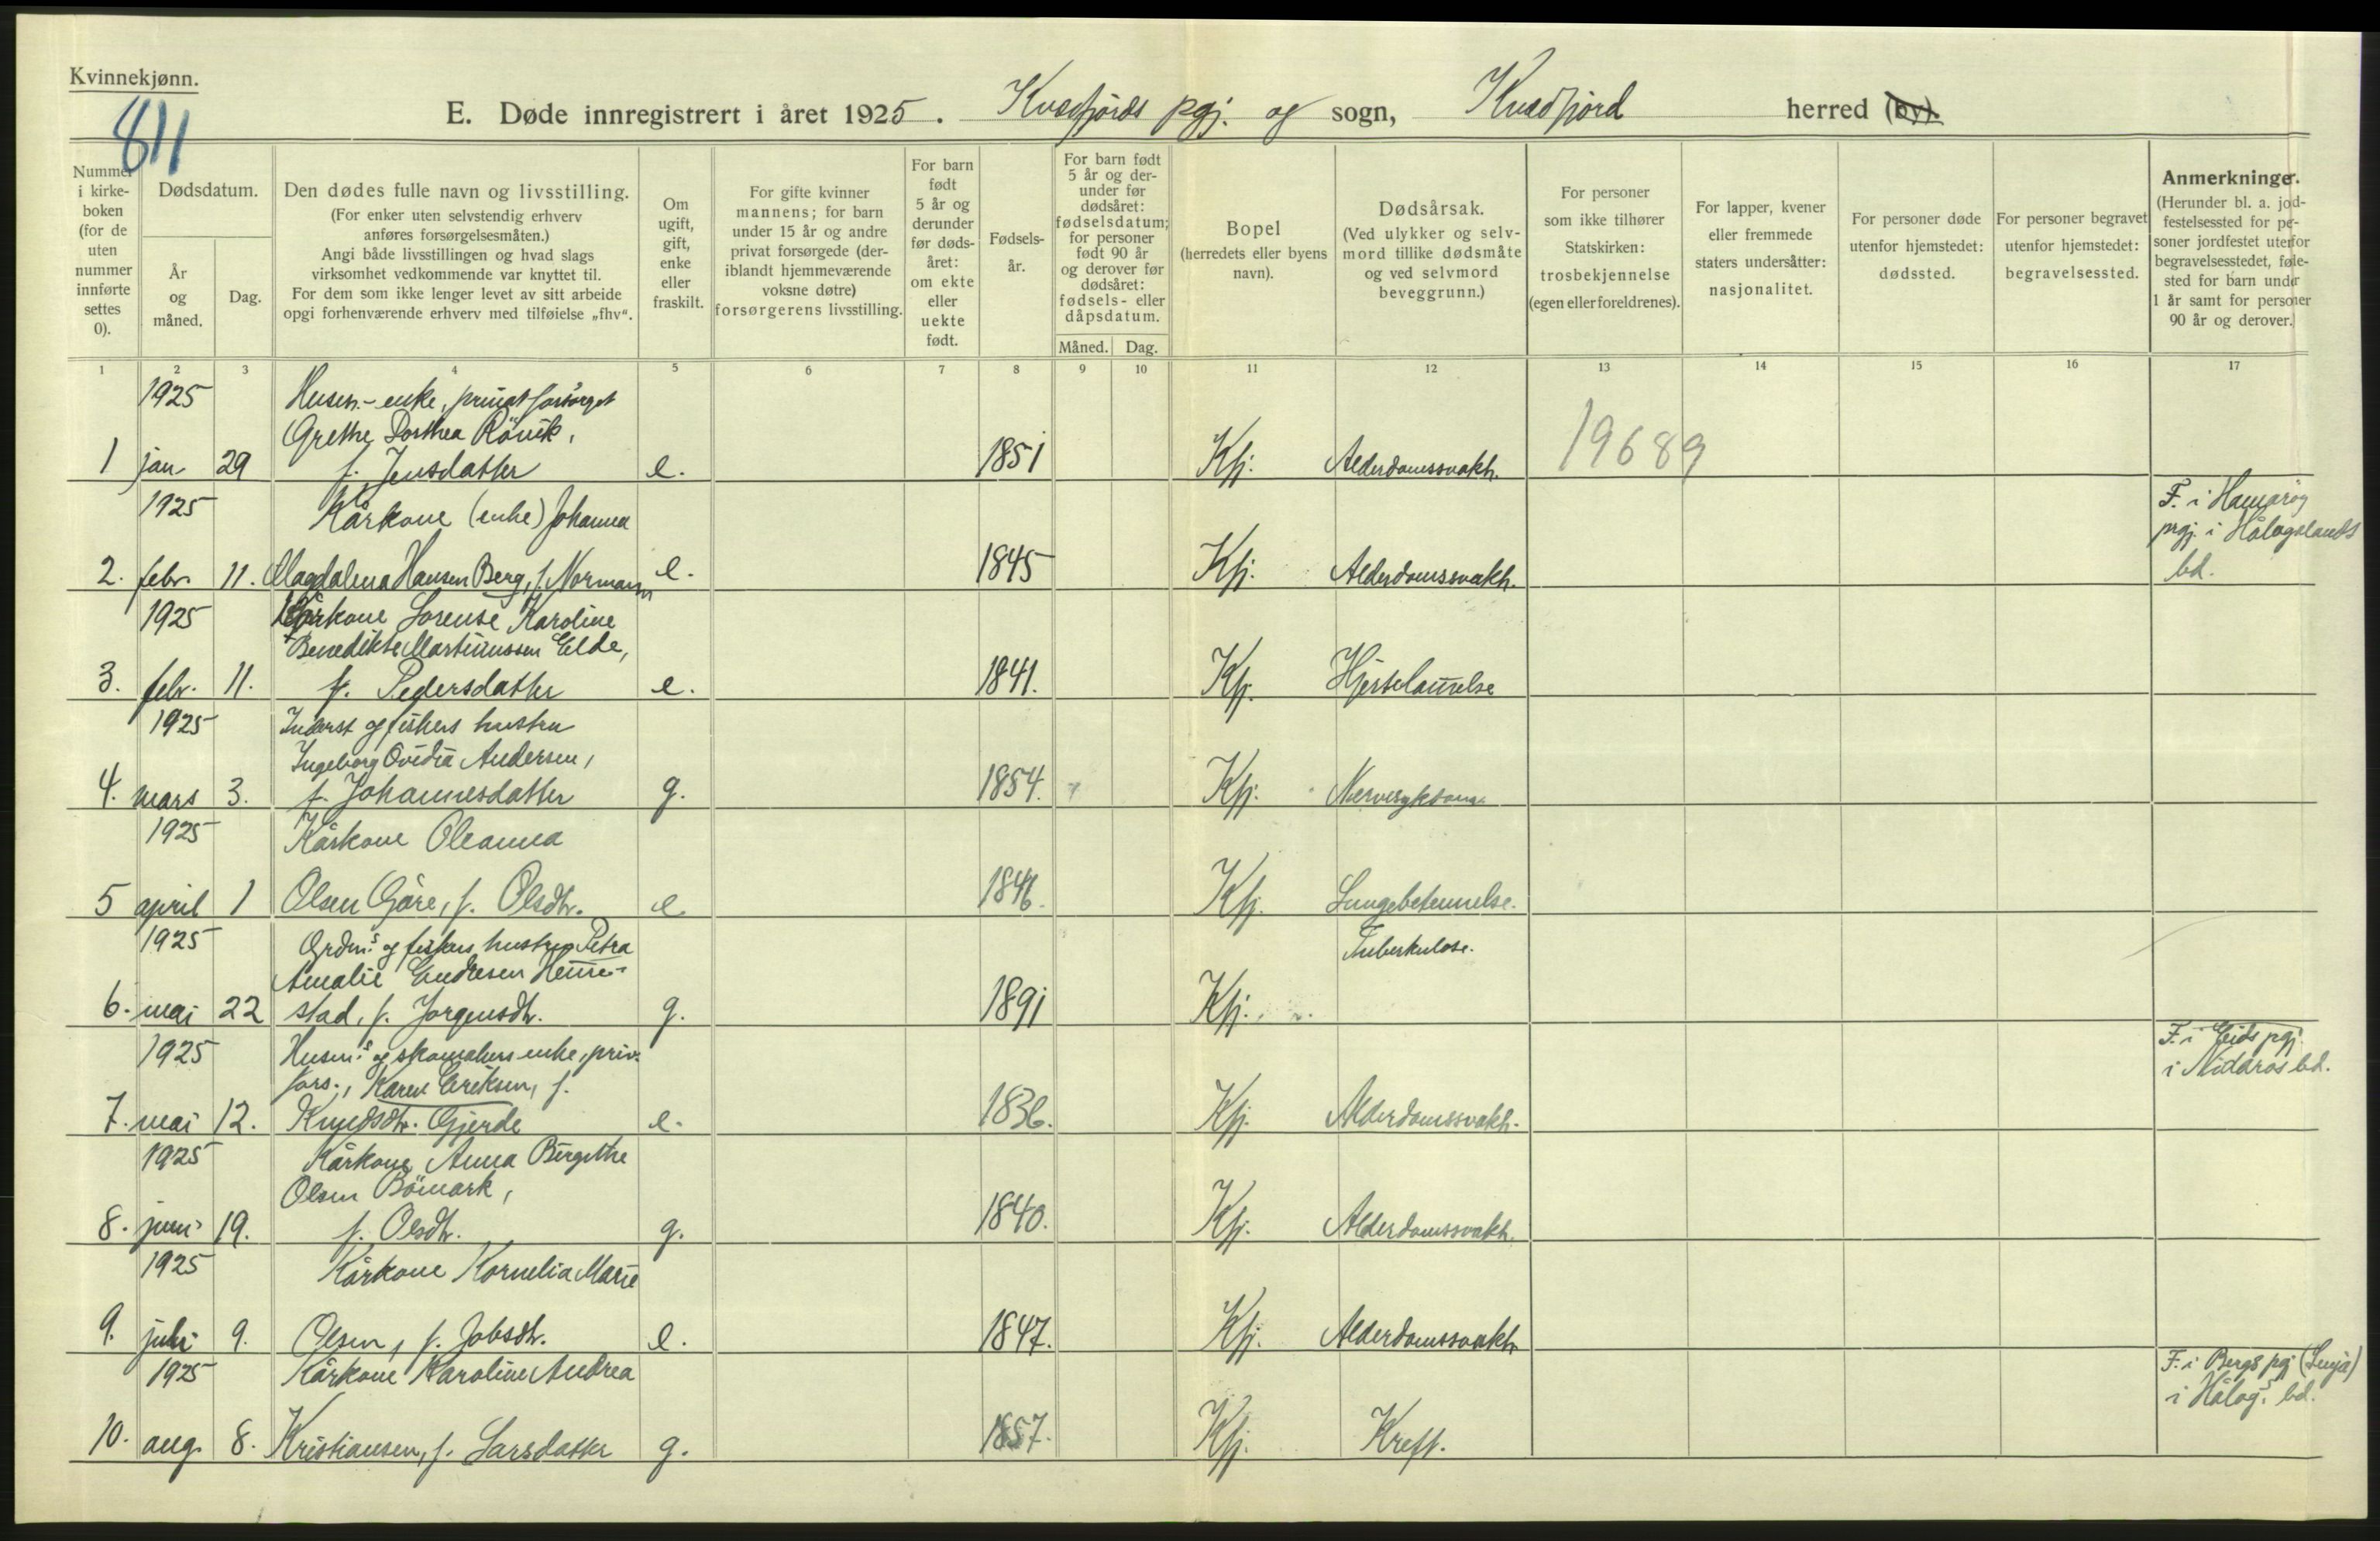 Kvinnekjønn.
811
E. Døde innregistrert i året 1925. Kvæfjords pgj. og sogn, Kvæfjord herred (by).
Nummer i kirkeboken (for de uten nummer innførte settes 0).
Dødsdatum.
År og måned.
Dag.
Den dødes fulle navn og livsstilling.
(For enker uten selvstendig erhverv anføres forsørgelsesmåten.)
Angi både livsstillingen og hvad slags virksomhet vedkommende var knyttet til.
For dem som ikke lenger levet av sitt arbeide opgi forhenværende erhverv med tilføielse „fhv“.
Om ugift, gift, enke eller fraskilt.
For gifte kvinner mannens; for barn under 15 år og andre privat forsørgede (deriblandt hjemmeværende voksne døtre) forsørgerens livsstilling.
For barn født 5 år og derunder før dødsåret: om ekte eller uekte født.
Fødselsår.
For barn født 5 år og derunder før dødsåret: fødselsdatum; for personer født 90 år og derover før dødsåret: fødsels- eller dåpsdatum.
Måned. Dag.
Bopel (herredets eller byens navn).
Dødsårsak.
(Ved ulykker og selvmord tillike dødsmåte og ved selvmord beveggrunn.)
For personer som ikke tilhører Statskirken: trosbekjennelse (egen eller foreldrenes).
For lapper, kvener eller fremmede staters undersåtter: nasjonalitet.
For personer døde utenfor hjemstedet: dødssted.
For personer begravet utenfor hjemstedet: begravelsessted.
Anmerkninger.
(Herunder bl. a. jordfestelsessted for personer jordfestet utenfor begravelsesstedet, fødested for barn under 1 år samt for personer 90 år og derover.)
1 2 3 4 5 6 7 8 9 10 11 12 13 14 15 16 17
1925 Husm.- enke, privat forsørget
Grethe Dorthea Rövik,
1 jan 29 f. Jensdatter e. 1851 Kfj. Alderdomssvakh. 19689
1925 Kårkone (enke) Johanna
2. febr. 11. Magdalena Hansen Berg, f. Normann e. 1845 Kfj. Alderdomssvakh.
F. i Hamarøy
prgj. i Hålogalands
bd.
1925 Kårkone Lorense Karoline
Benedikte Martinussen Elde,
3. febr. 11. f. Pedersdatter e. 1841. Kfj. Hjertelammelse
1925 Inderst og fiskers hustru
Ingeborg Ovidia Andersen,
4. mars 3. f. Johannesdatter g. 1854. Kfj. Nervesykdom
1925 Kårkone Oleanna
5 april 1 Olsen Gåre, f. Olsdtr. e 1846. Kfj. Lungebetennelse.
1925 Grdm.s og fiskers hustru Petra Tuberkulose.
Amalie Endresen Hemme-
6. mai 22 stad, f. Jorgensdtr. g. 1891 Kfj.
1925 Husm.s og skomakers enke, priv.
fors., Karen Eriksen, f.
7. mai 12. Knudsdtr. Gjerde e. 1836. Kfj. Alderdomssvakh.
F. i Eids pgj.
i Nidaros bd.
1925 Kårkone Anna Bergithe
Olsen Bömark,
8. juni 19. f. Olsdtr. g. 1840. Kfj. Alderdomssvakh.
1925 Kårkone Kornelia Marie
9. juli 9. Olsen, f. Jobsdtr. e. 1847. Kfj. Alderdomssvakh.
1925 Kårkone Karoline Andrea
10. aug. 8. Kristiansen, f. Larsdatter g. 1857. Kfj. Kreft.
F. i Bergs pgj (Senja)
i Hålog.s bd.